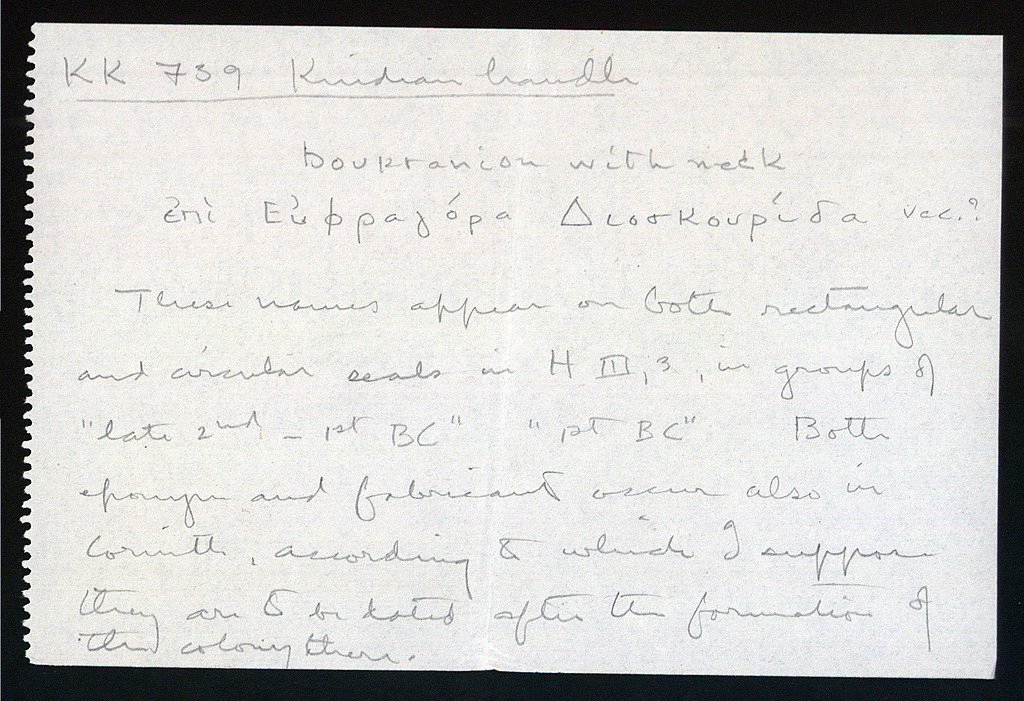 KK 739 Knidian handle
boukranion with neck
ἐπὶ Εὐφραγόρα Διοσκουρίδα
These names appear on both rectangular
and circular seals in H III, 3, in groups of
"late 2nd – 1st BC" "1st BC" Both
eponym and fabricant occur also in
Corinth, according to which I suppose
they are to be dated after the formation of
the colony there.